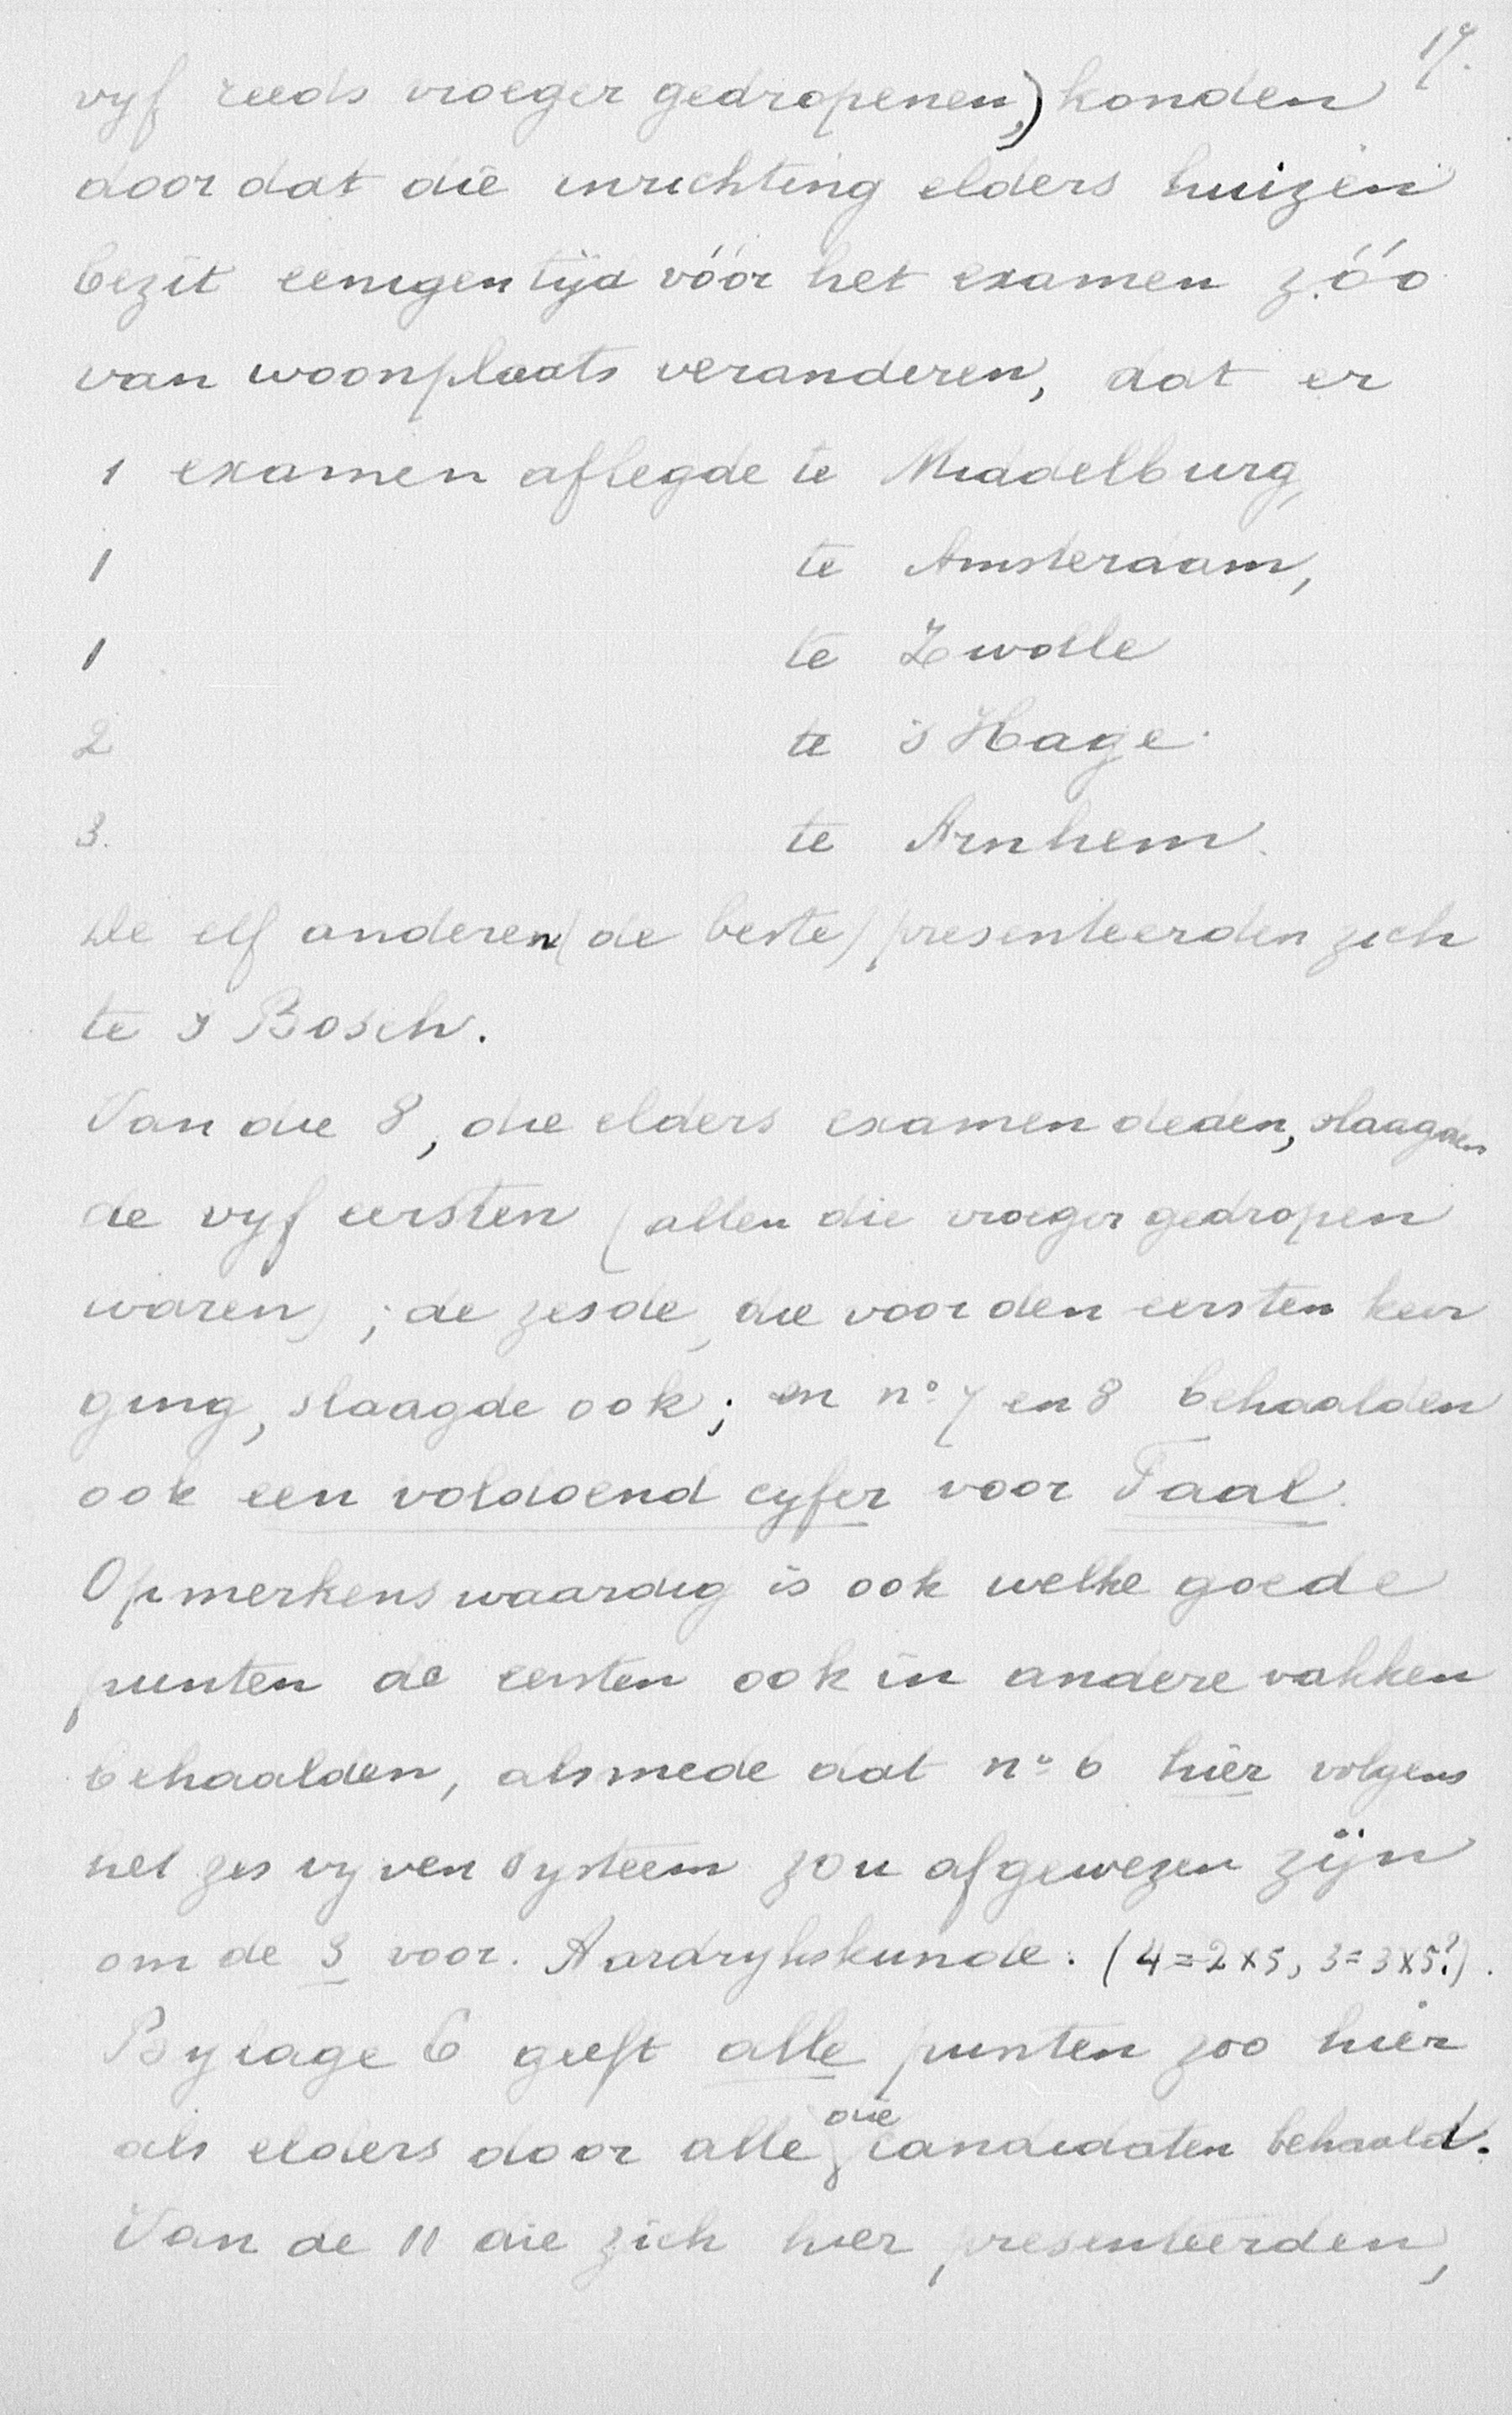 17.
vyf reeds vroeger gedropenen,) konden
door dat die inrichting elders huizen
bezit eenigen tijd vóór het examen zóó
van woonplaats veranderen, dat er
1 examen aflegde te Middelburg,
1 te Amsterdam,
1 te Zwolle
2 te 's Hage.
3. te Arnhem.
De elf anderen (de beste) presenteerden zich
te 's Bosch.
Van die 8, die elders examen deden, slaagden
de vyf eersten (allen die vroeger gedropen
waren) ; de zesde, die voor den eersten keer
ging, slaagde ook; en no 7 en 8 behaalden
ook een voldoend cyfer voor Taal.
Opmerkenswaardig is ook welke goede
punten de eersten ook in andere vakken
behaalden, alsmede dat no 6 hier volgens
het zes vyven systeem zou afgewezen zijn
om de 3 voor. Aardrykskunde. (4=2x5, 3=3x5?).
Bylage 6 geeft alle punten zoo hier
als elders door alle die candidaten behaald.
Van de 11 die zich hier presenteerden,